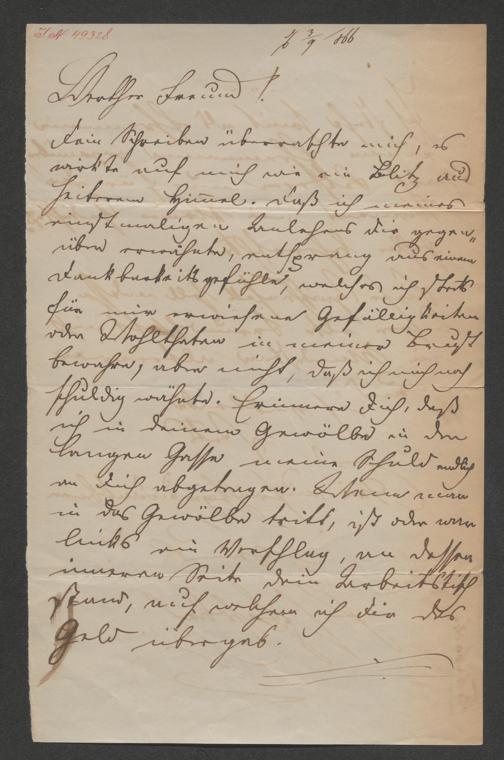 IN 49328
3/9 866
Werther Freund!
Dein Schreiben überraschte mich, es
wirkte auf mich wie ein Blitz aus
heiterem Himel. Daß ich meines
einstmaligen Anlehens Dir gegen"
über erwähnte, entsprang aus einem
Dankbarkeitsgefühle, welches ich stets
für mir erwiesene Gefälligkeiten
oder Wohlthaten in meiner Brust
bewahre, aber nicht, daß ich mich noch
schuldig wähnte. Erinnere Dich, daß
ich in deinem Gewölbe in der
langen Gasse meine Schuld endlich
an Dich abgetragen. Wenn man
in das Gewölbe tritt, ist oder war
links ein Verschlag, an dessen
inneren Seite dein Arbeitstisch
stand, auf welchem ich Dir das
Geld übergab.